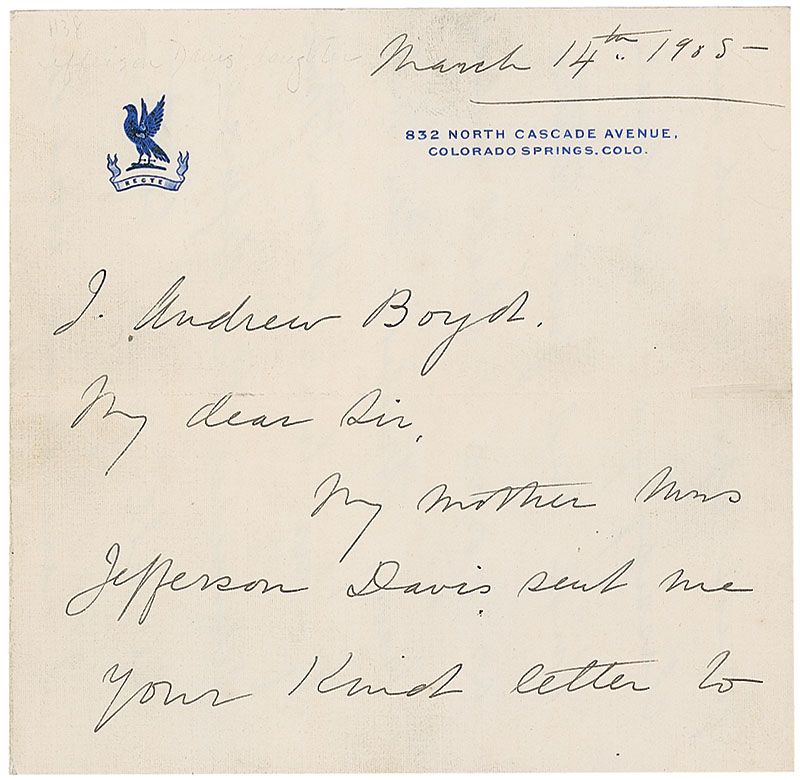 1138
Jefferson Davis daughter
March 14th. 1905 –
832 NORTH CASCADE AVENUE,
COLORADO SPRINGS, COLO.
RECTE
J. Andrew Boyd.
My dear Sir,
My mother Mrs
Jefferson Davis sent me
your kind letter to